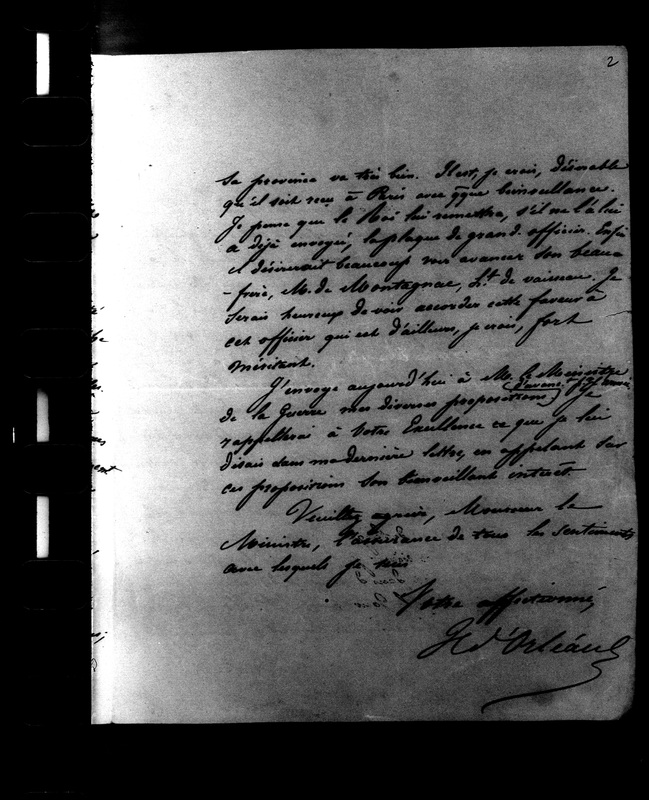 2
Sa province va très bien. Il est, je crois, désirable
qu'il soit reçu à Paris avec qque bienveillance.
Je pense que le Roi lui remettra, s'il ne l'a lui
a déjà envoyé, la plaque de grand officier. Enfin
il désirerait beaucoup voir avancer son beau
-frère, M. de Montagnac, Lt. de vaisseau. Je
serais heureux de voir accorder cette faveur à
cet officier qui est d'ailleurs, je crois, fort
méritant.
J'envoye aujourd'hui à Mr. le Ministre
de la Guerre mes diverses propositions (d'avanc.t Je
rappellerai à Votre Excellence ce que je lui
disais dans ma dernière lettre, en appelant sur
ces propositions son bienveillant intérêt
Veuillez agréer, Monsieur le
Ministre, l'assurance de tous les sentiments
avec lesquels je suis
Votre affectionné,
H d'Orléans